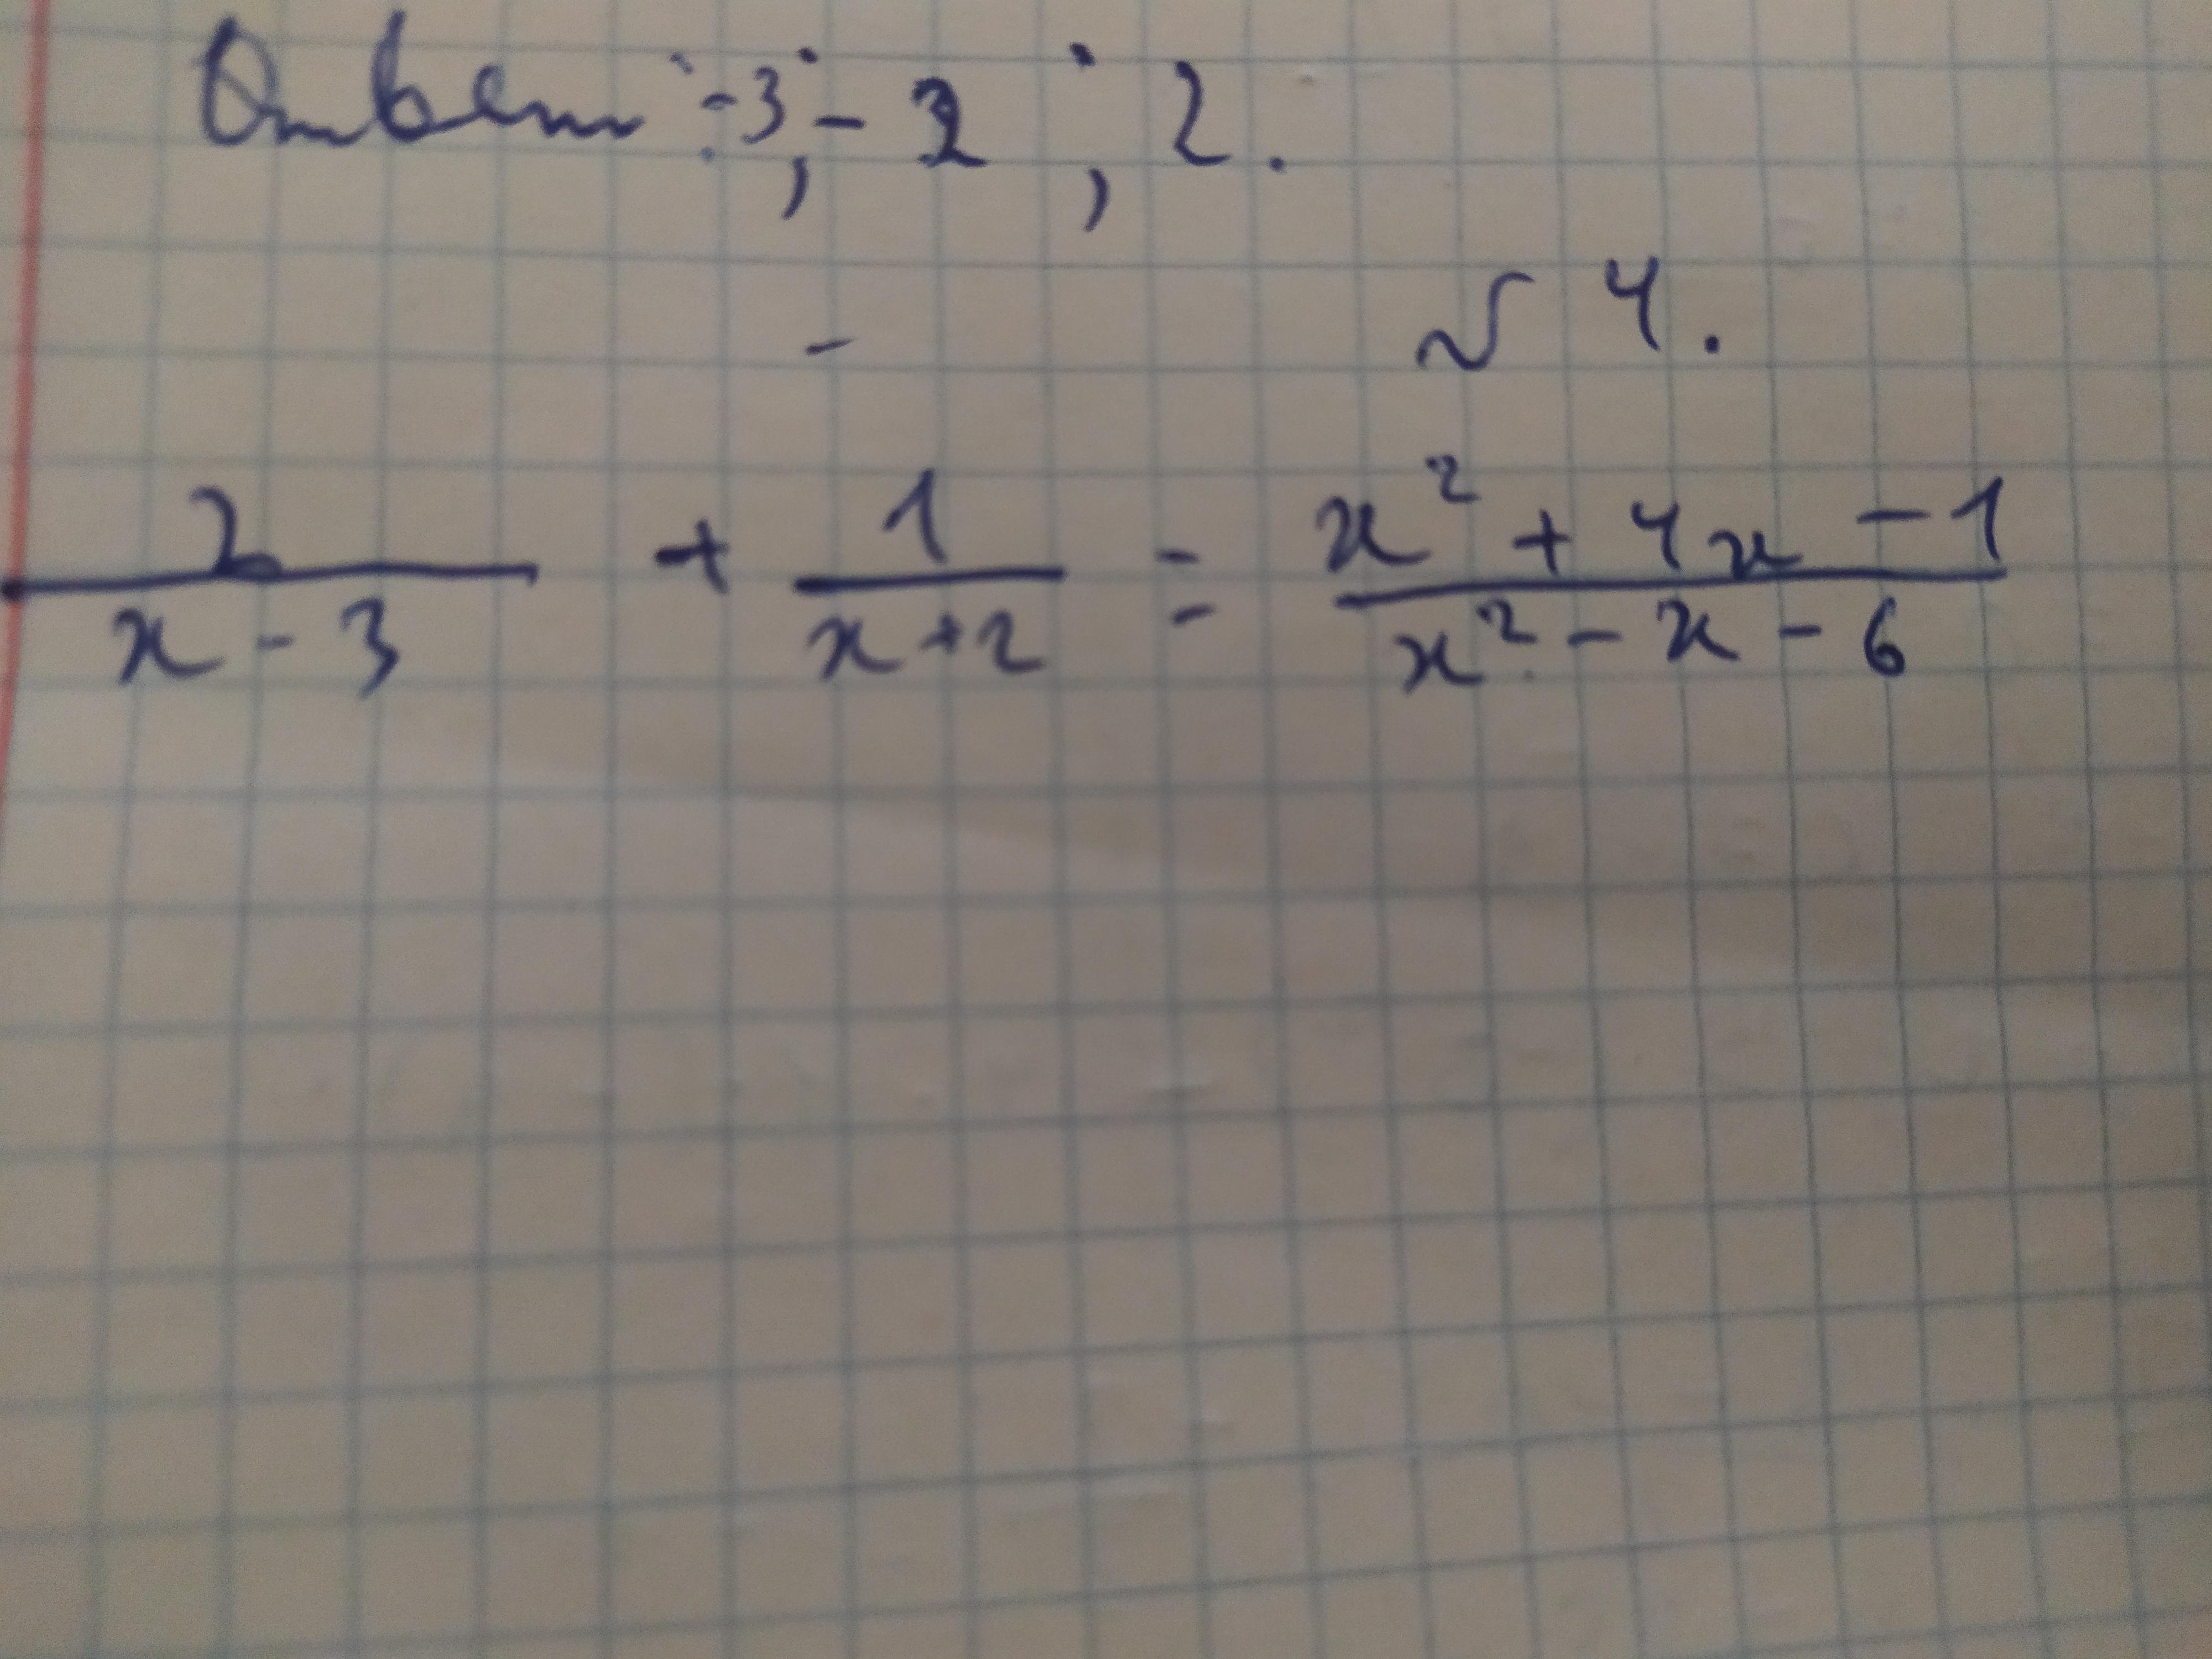 Ответ: -3; -2; 2.
№ 4.
2/(x - 3) + 1/(x + 2) = (x² + 4x - 1)/(x² - x - 6)